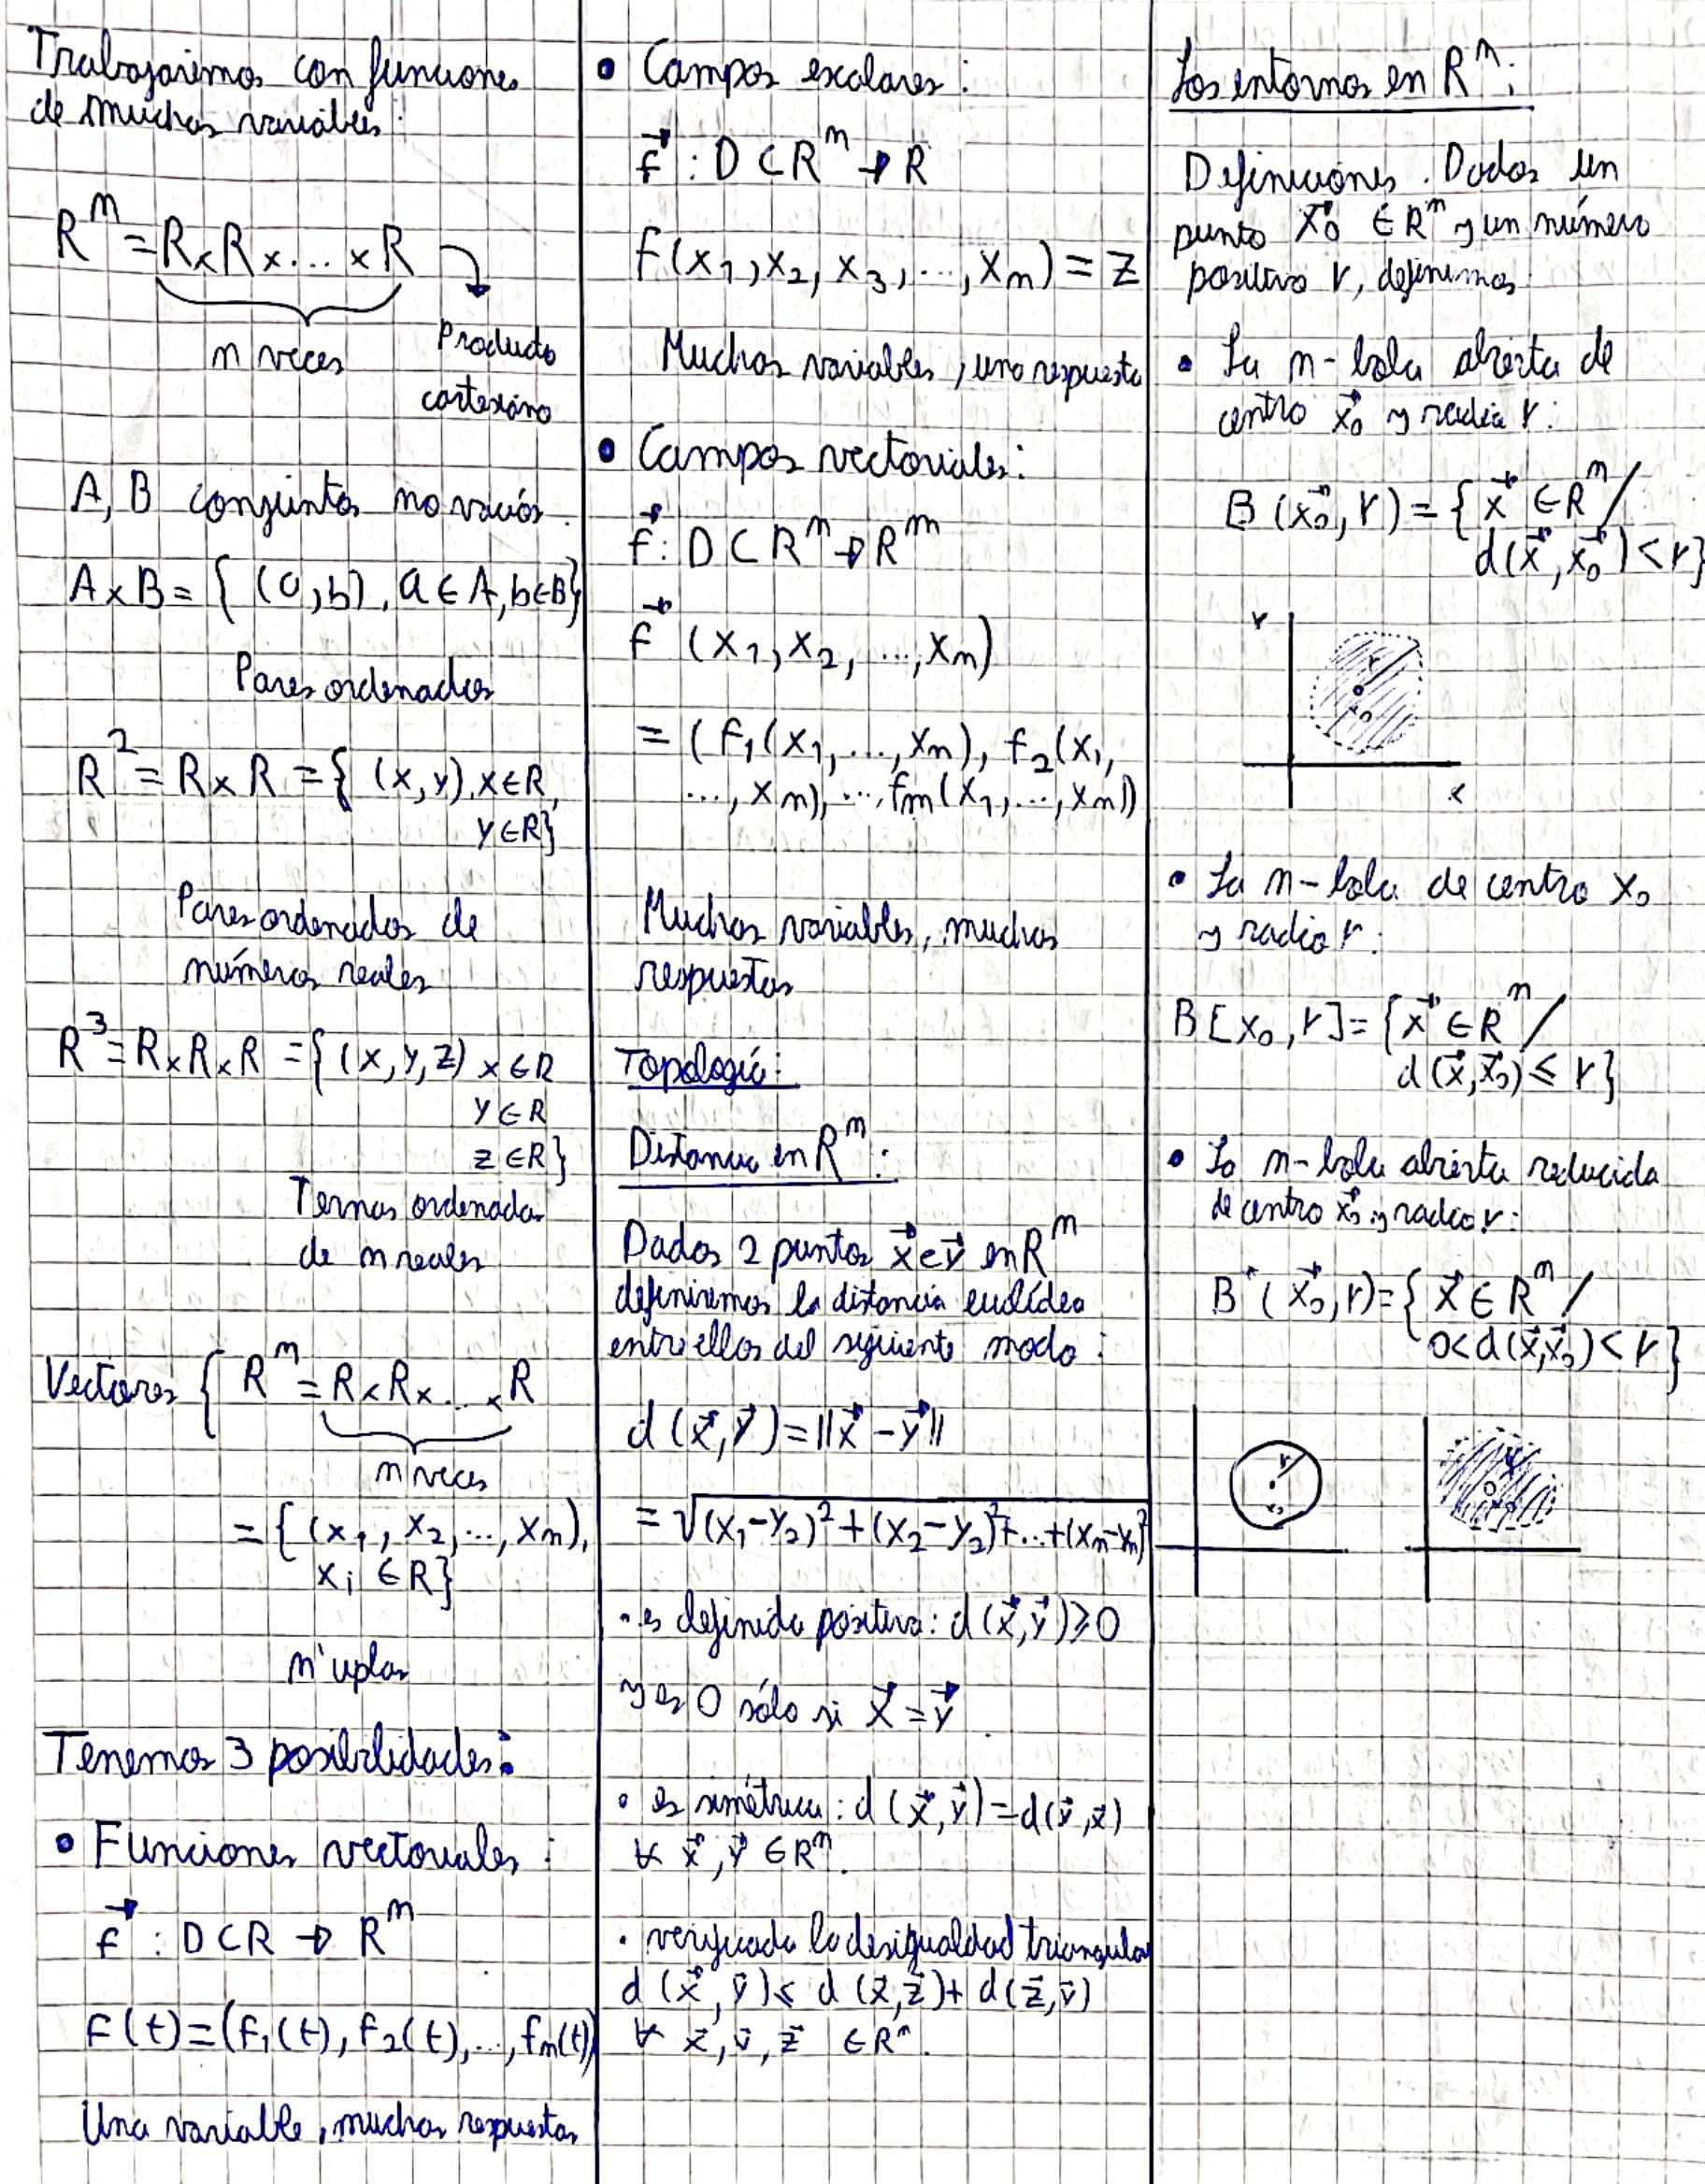 Trabajaremos con funciones
de muchas variables:
R^n = R x R x ... x R
n veces
Producto
cartesiano
A, B conjuntos no vacíos.
A x B = { (a, b), a ∈ A, b ∈ B}
Pares ordenados
R^2 = R x R = { (x, y), x ∈ R,
y ∈ R}
Pares ordenados de
números reales
R^3 = R x R x R = { (x, y, z) x ∈ R
y ∈ R
z ∈ R}
Ternas ordenadas
de n reales
Vectores { R^n = R x R x ... x R
n veces
= { (x_1, x_2, ..., x_n),
x_i ∈ R}
n'uplas
Tenemos 3 posibilidades:
• Funciones vectoriales:
f⃗ : D ⊂ R → R^n
F(t) = (f_1(t), f_2(t), ..., f_n(t))
Una variable, muchas respuestas
• Campos escalares:
f⃗ : D ⊂ R^n → R
F(x_1, x_2, x_3, ..., x_n) = z
Muchas variables, una respuesta
• Campos vectoriales:
f⃗ : D ⊂ R^n → R^m
f⃗ (x_1, x_2, ..., x_n)
= (f_1(x_1, ..., x_n), f_2(x_1,
..., x_n), ..., f_m(x_1, ..., x_n))
Muchas variables, muchas
respuestas
Topología:
Distancia en R^n:
Dados 2 puntos x⃗ e y⃗ en R^n
definiremos la distancia euclídea
entre ellos del siguiente modo:
d(x⃗, y⃗) = ||x⃗ - y⃗||
= √(x_1-y_2)^2 + (x_2-y_2)^2 + ... + (x_n-y_n)^2
• es definida positiva: d(x⃗, y⃗) ≥ 0
y es 0 sólo si x⃗ = y⃗.
• es simétrica: d(x⃗, y⃗) = d(y⃗, x⃗)
∀ x⃗, y⃗ ∈ R^n.
• verificada la desigualdad triangular
d(x⃗, y⃗) ≤ d(x⃗, z⃗) + d(z⃗, y⃗)
∀ x⃗, y⃗, z⃗ ∈ R^n.
Los entornos en R^n:
Definiciones. Dados un
punto x⃗_0 ∈ R^n y un número
positivo r, definimos:
• La n-bola abierta de
centro x⃗_0 y radio r:
B(x⃗_0, r) = { x⃗ ∈ R^n /
d(x⃗, x⃗_0) < r}
y
r
x_0
x
• La n-bola de centro x_0
y radio r:
B[x_0, r] = { x⃗ ∈ R^n /
d(x⃗, x⃗_0) ≤ r}
• La n-bola abierta reducida
de centro x⃗_0 y radio r:
B*(x⃗_0, r) = { x⃗ ∈ R^n /
0 < d(x⃗, x⃗_0) < r}
r
x_0